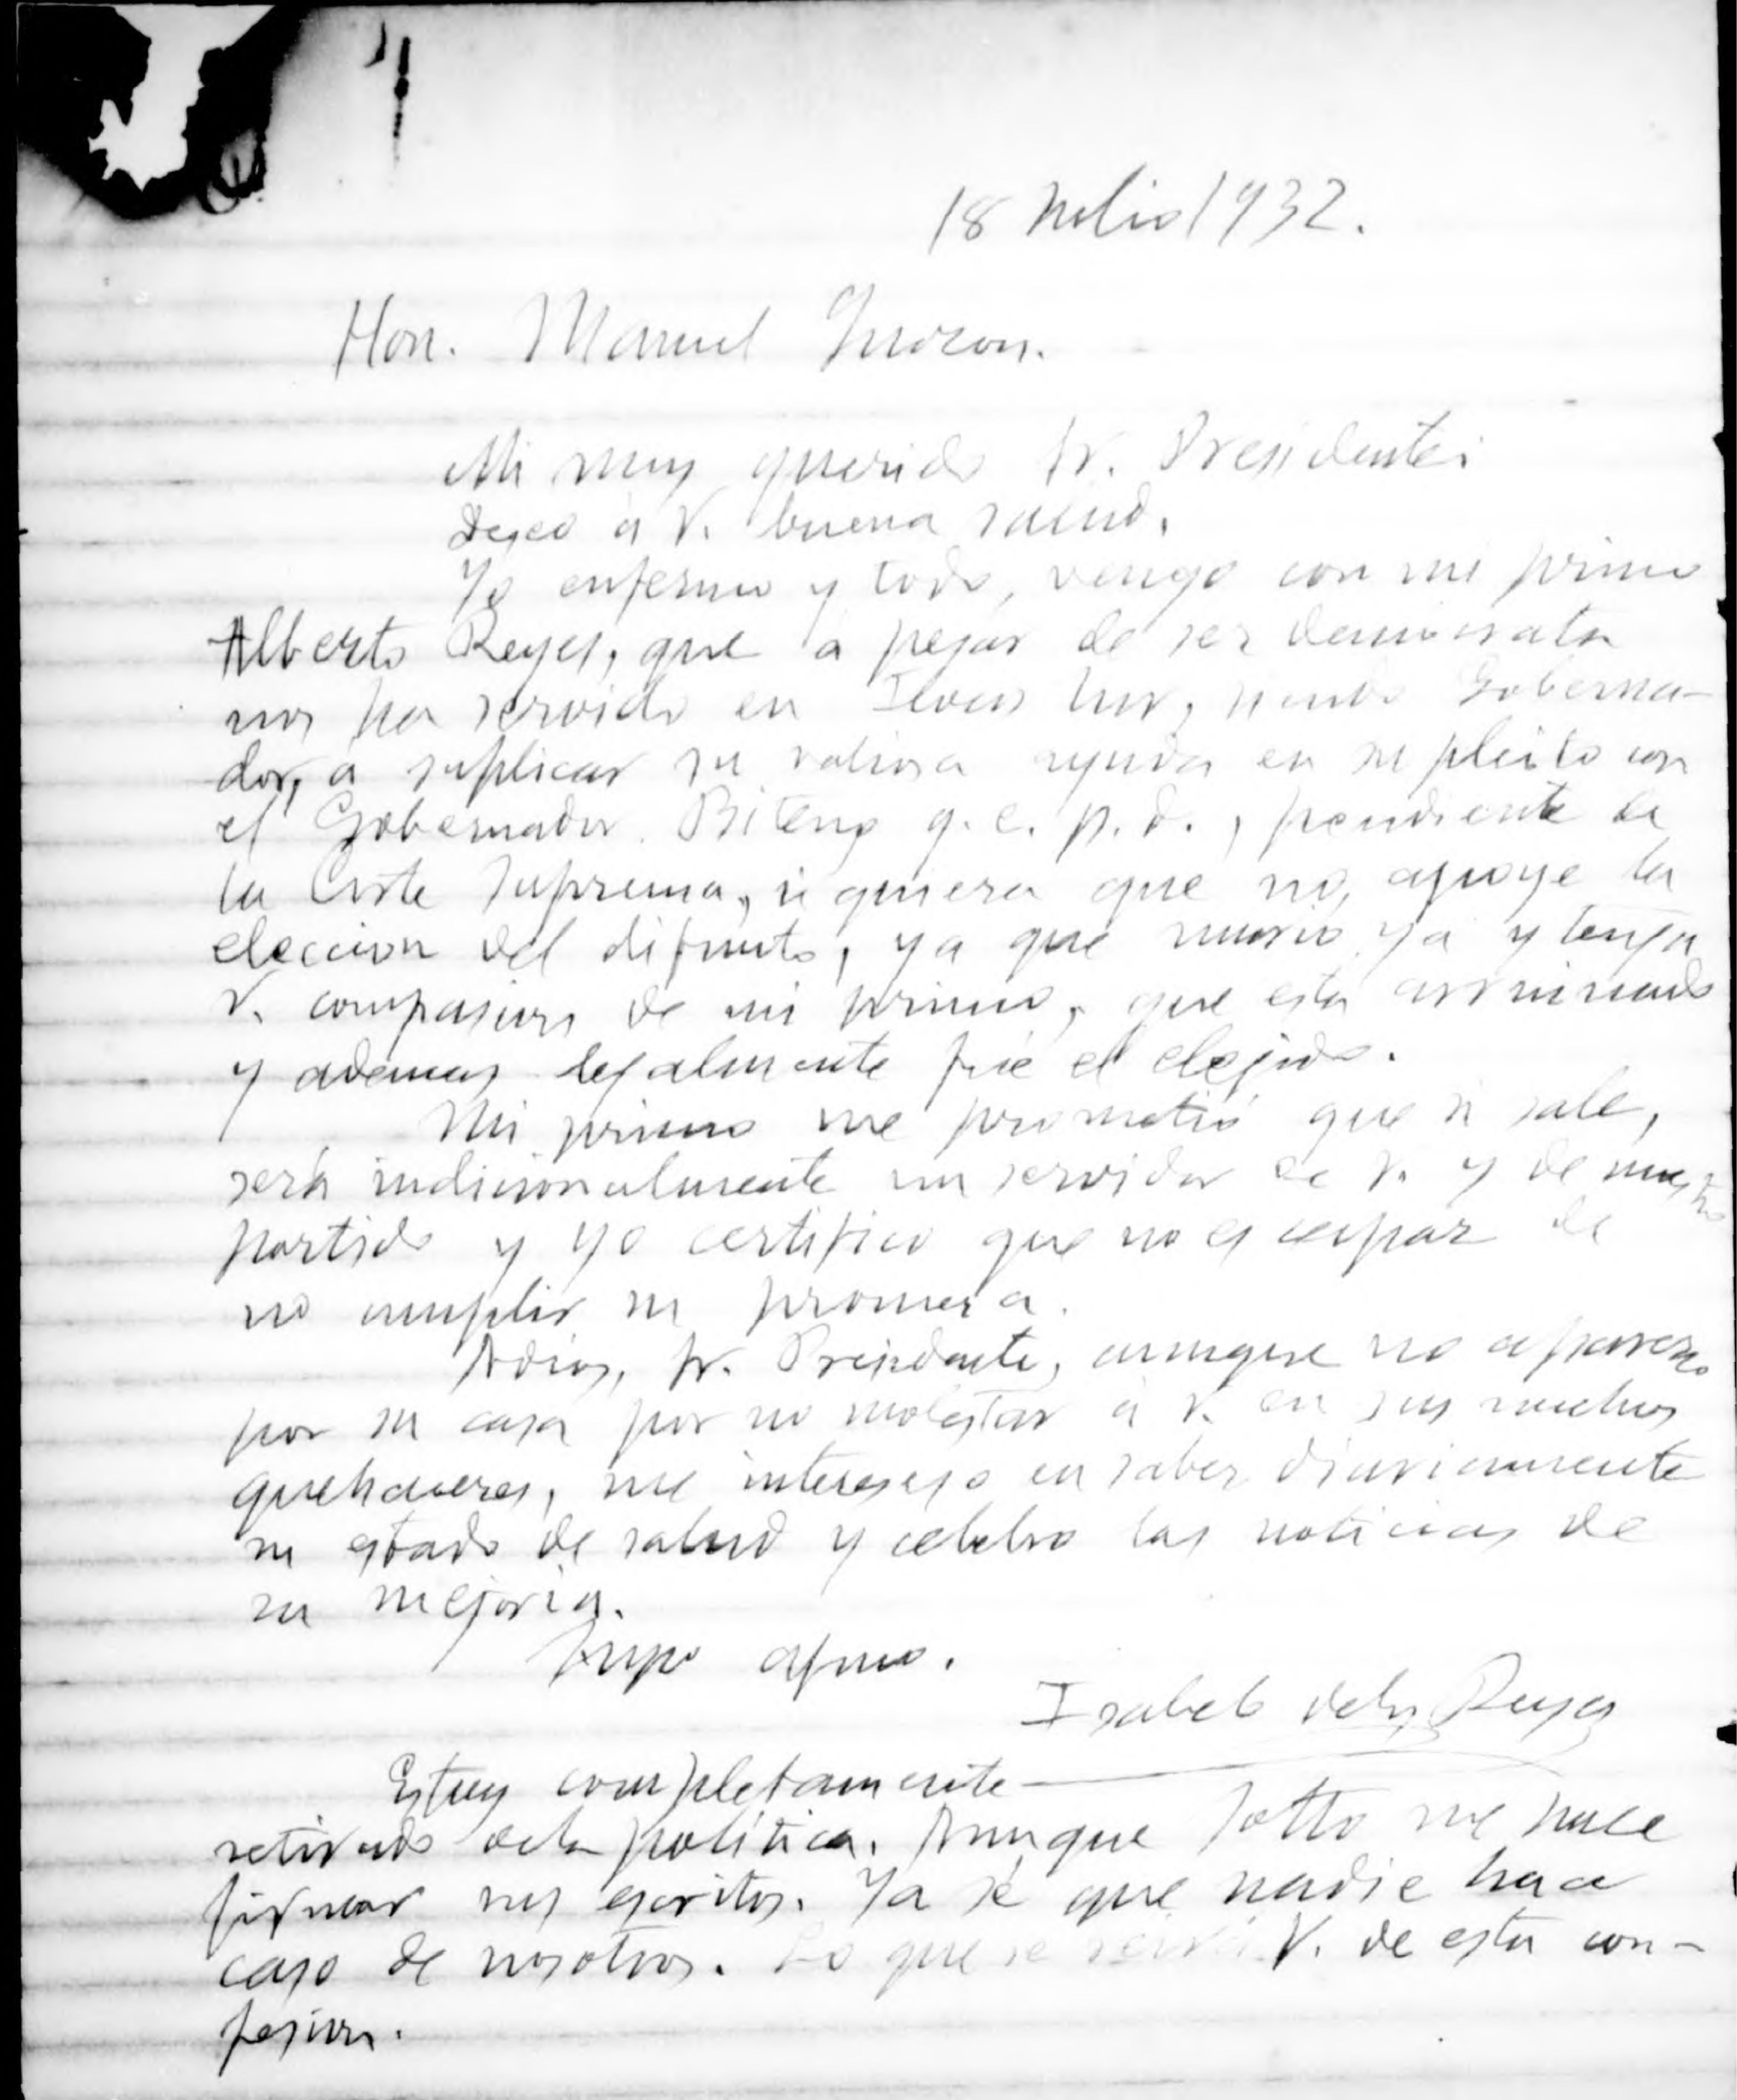 18 Julio 1932.
Hon. Manuel Quezon.
Mi muy querido Sr. Presidente:
Deseo á V. buena salud.
Yo enfermo y todo, vengo con mi primo
Alberto Reyes, que á pesar de ser democrata
nos ha servido en Ilocos Sur, siendo Goberna-
dor, á suplicar su valiosa ayuda en su pleito con
el Gobernador Biteng q.e.p.d., pendiente de
la Corte Suprema, siquiera que no apoye la
eleccion del difunto, ya que murió ya y tenga
V. compasion de mi primo, que está arruinado
y ademas legalmente fué el elejido.
Mi primo me prometió que si sale,
será indicionalmente un servidor de V. y de nuestro
partido y yo certifico que no es capaz de
no cumplir su promesa.
Adios, Sr. Presidente, aunque no aparezco
por su casa por no molestar á V. en sus muchos
quehaceres, me intereso en saber diariamente
su estado de salud y celebro las noticias de
su mejoria.
Suyo afmo.
Isabelo delos Reyes
Estoy completamente
retirado dela política. Aunque Sotto me hace
firmar sus escritos. Ya sé que nadie hace
caso de nosotros. Lo que se V. de esta con-
fesion.